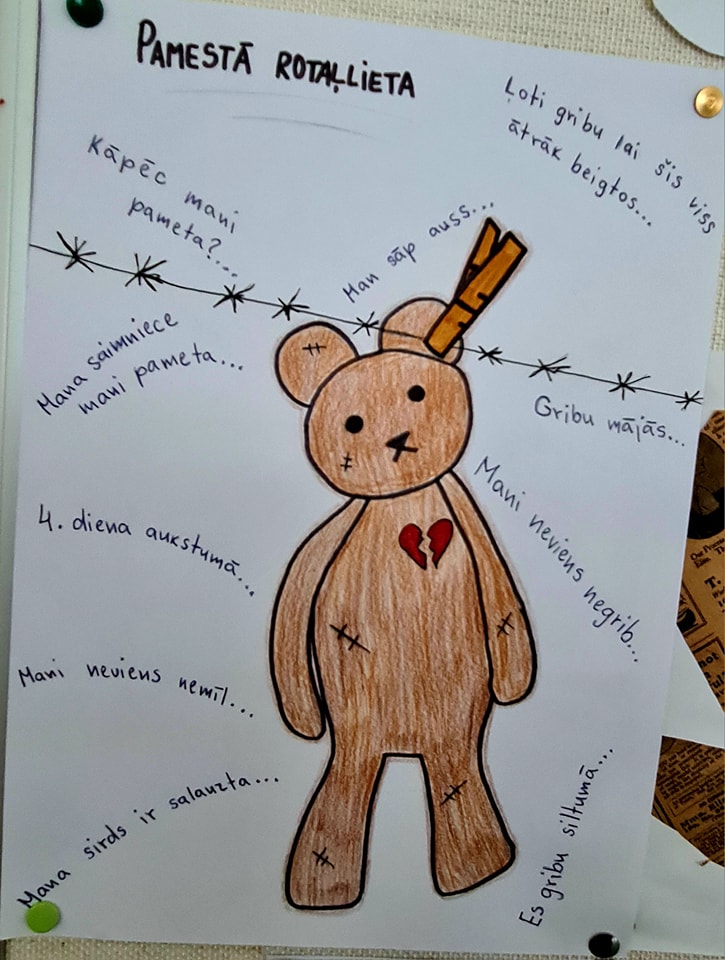 PAMESTĀ ROTAĻLIETA
Ļoti gribu lai šis viss
ātrāk beigtos...
Kāpēc mani
pameta?...
Man sāp auss...
Mana saimniece
mani pameta...
Gribu mājās...
Mani neviens negrib...
4. diena aukstumā...
Mani neviens nemīl...
Mana sirds ir salauzta...
Es gribu siltumā...